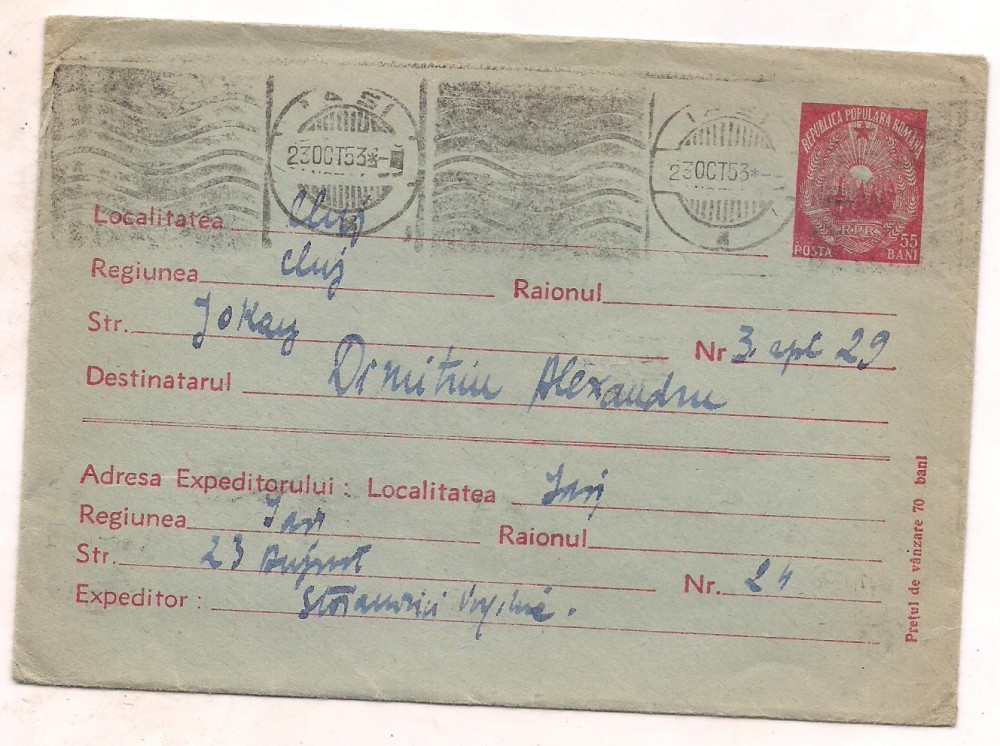 IAȘI IAȘI
23OCT53 23OCT53
4
REPUBLICA POPULARA ROMANA
RPR
POSTA 55 BANI
Localitatea Cluj
Regiunea Cluj Raionul
Str. Jokay Nr 3. apt 29
Destinatarul Dimitriu Alexandru
Adresa Expeditorului : Localitatea Iași
Regiunea Iași Raionul
Str. 23 August Nr. 24
Expeditor :
Prețul de vânzare 70 bani